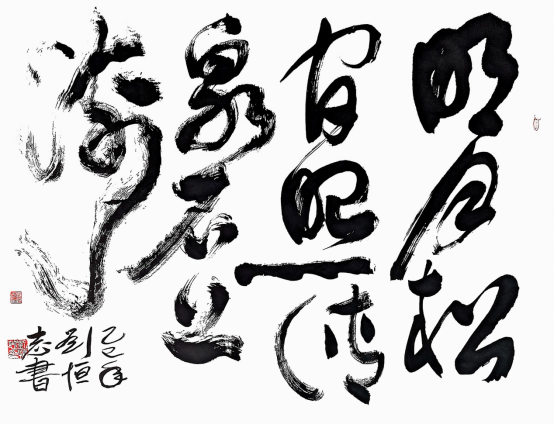 明月松
間照清
泉石上
流
乙巳年
刘恒
志書